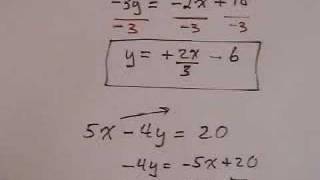 -3y = -2x + 18
-3 -3 -3
y = +2x/3 - 6
5x - 4y = 20
-4y = -5x + 20